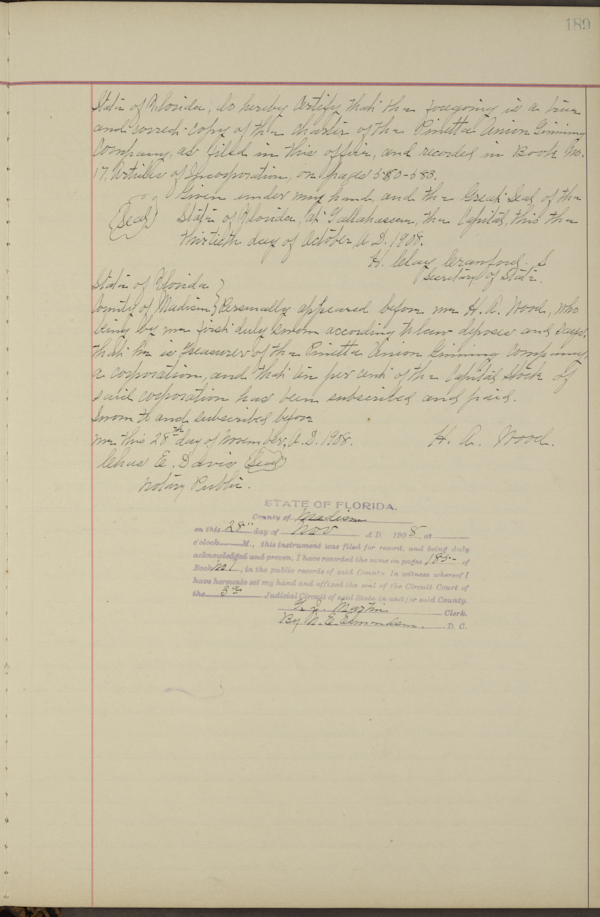 189
State of Florida, do hereby certify that the foregoing is a true
and correct copy of the charter of the Pinetta Union Ginning
Company, as filed in this office, and recorded in Book No.
17, Articles of Incorporation, on pages 580-583.
Given under my hand, and the Great Seal of the
(Seal) State of Florida, at Tallahassee, the Capital, this the
thirtieth day of October, A.D. 1908.
H. Clay Crawford.
Secretary of State.
State of Florida }
County of Madison } Personally appeared before me H. A. Wood, who
being by me first duly sworn according to law deposes and says,
that he is Treasurer of the Pinetta Union Ginning Company,
a corporation, and that ten per cent of the Capital Stock of
said corporation has been subscribed and paid.
Sworn to and subscribed before
me this 28th day of November, A.D. 1908. H. A. Wood.
Chas E. Davis (Seal)
Notary Public.
STATE OF FLORIDA.
County of Madison
on this 28" day of Nov A D 1908, at
o'clock M., this instrument was filed for record, and being duly
acknowledged and proven, I have recorded the same on pages 185- of
Book No 1, in the public records of said County. In witness whereof I
have hereunto set my hand and affixed the seal of the Circuit Court of
the 3rd Judicial Circuit of said State in and for said County.
Martin Clerk.
By D. C.